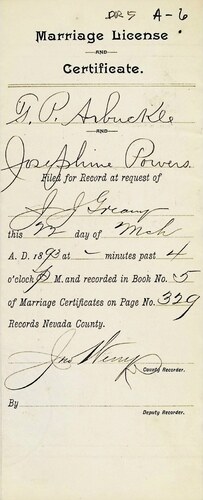 DR 5 A-6
Marriage License
AND
Certificate.
T. P. Arbuckle
AND
Josephine Powers
Filed for Record at request of
J J Greany
this 22 day of Mch
A. D. 1893 at - minutes past 4
o'clock P M. and recorded in Book No. 5
of Marriage Certificates on Page No. 329
Records Nevada County.
Jno Werry
County Recorder.
By
Deputy Recorder.